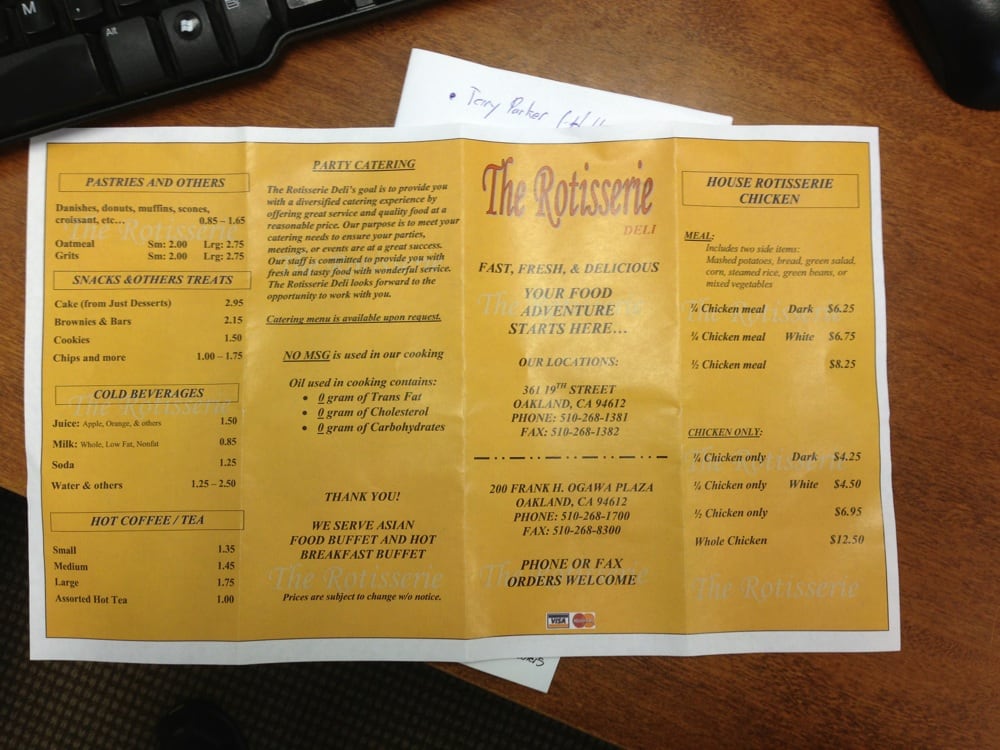 M
AR
Terry Parker
PASTRIES AND OTHERS
Danishes, donuts, muffins, scones,
croissant, etc… 0.85 – 1.65
Oatmeal Sm: 2.00 Lrg: 2.75
Grits Sm: 2.00 Lrg: 2.75
SNACKS &OTHERS TREATS
Cake (from Just Desserts) 2.95
Brownies & Bars 2.15
Cookies 1.50
Chips and more 1.00 – 1.75
COLD BEVERAGES
The Rotisserie
Juice: Apple, Orange, & others 1.50
Milk: Whole, Low Fat, Nonfat 0.85
Soda 1.25
Water & others 1.25 – 2.50
HOT COFFEE / TEA
Small 1.35
Medium 1.45
Large 1.75
Assorted Hot Tea 1.00
PARTY CATERING
The Rotisserie Deli's goal is to provide you
with a diversified catering experience by
offering great service and quality food at a
reasonable price. Our purpose is to meet your
catering needs to ensure your parties,
meetings, or events are at a great success.
Our staff is committed to provide you with
fresh and tasty food with wonderful service.
The Rotisserie Deli looks forward to the
opportunity to work with you.
Catering menu is available upon request.
NO MSG is used in our cooking
Oil used in cooking contains:
• 0 gram of Trans Fat
• 0 gram of Cholesterol
• 0 gram of Carbohydrates
THANK YOU!
WE SERVE ASIAN
FOOD BUFFET AND HOT
BREAKFAST BUFFET
The Rotisserie
Prices are subject to change w/o notice.
The Rotisserie
DELI
FAST, FRESH, & DELICIOUS
YOUR FOOD
ADVENTURE
STARTS HERE…
OUR LOCATIONS:
361 19TH STREET
OAKLAND, CA 94612
PHONE: 510-268-1381
FAX: 510-268-1382
200 FRANK H. OGAWA PLAZA
OAKLAND, CA 94612
PHONE: 510-268-1700
FAX: 510-268-8300
PHONE OR FAX
ORDERS WELCOME
VISA
HOUSE ROTISSERIE
CHICKEN
MEAL:
Includes two side items:
Mashed potatoes, bread, green salad,
corn, steamed rice, green beans, or
mixed vegetables
¼ Chicken meal Dark $6.25
¼ Chicken meal White $6.75
½ Chicken meal $8.25
CHICKEN ONLY:
¼ Chicken only Dark $4.25
¼ Chicken only White $4.50
½ Chicken only $6.95
Whole Chicken $12.50
The Rotisserie